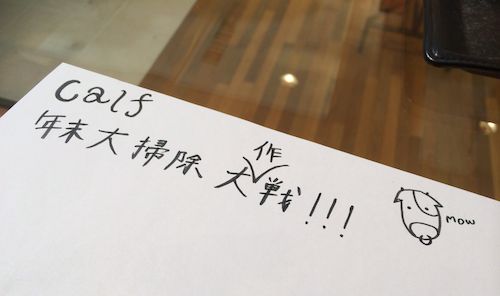 Calf
年末大掃除 大作戦!!!
MOW